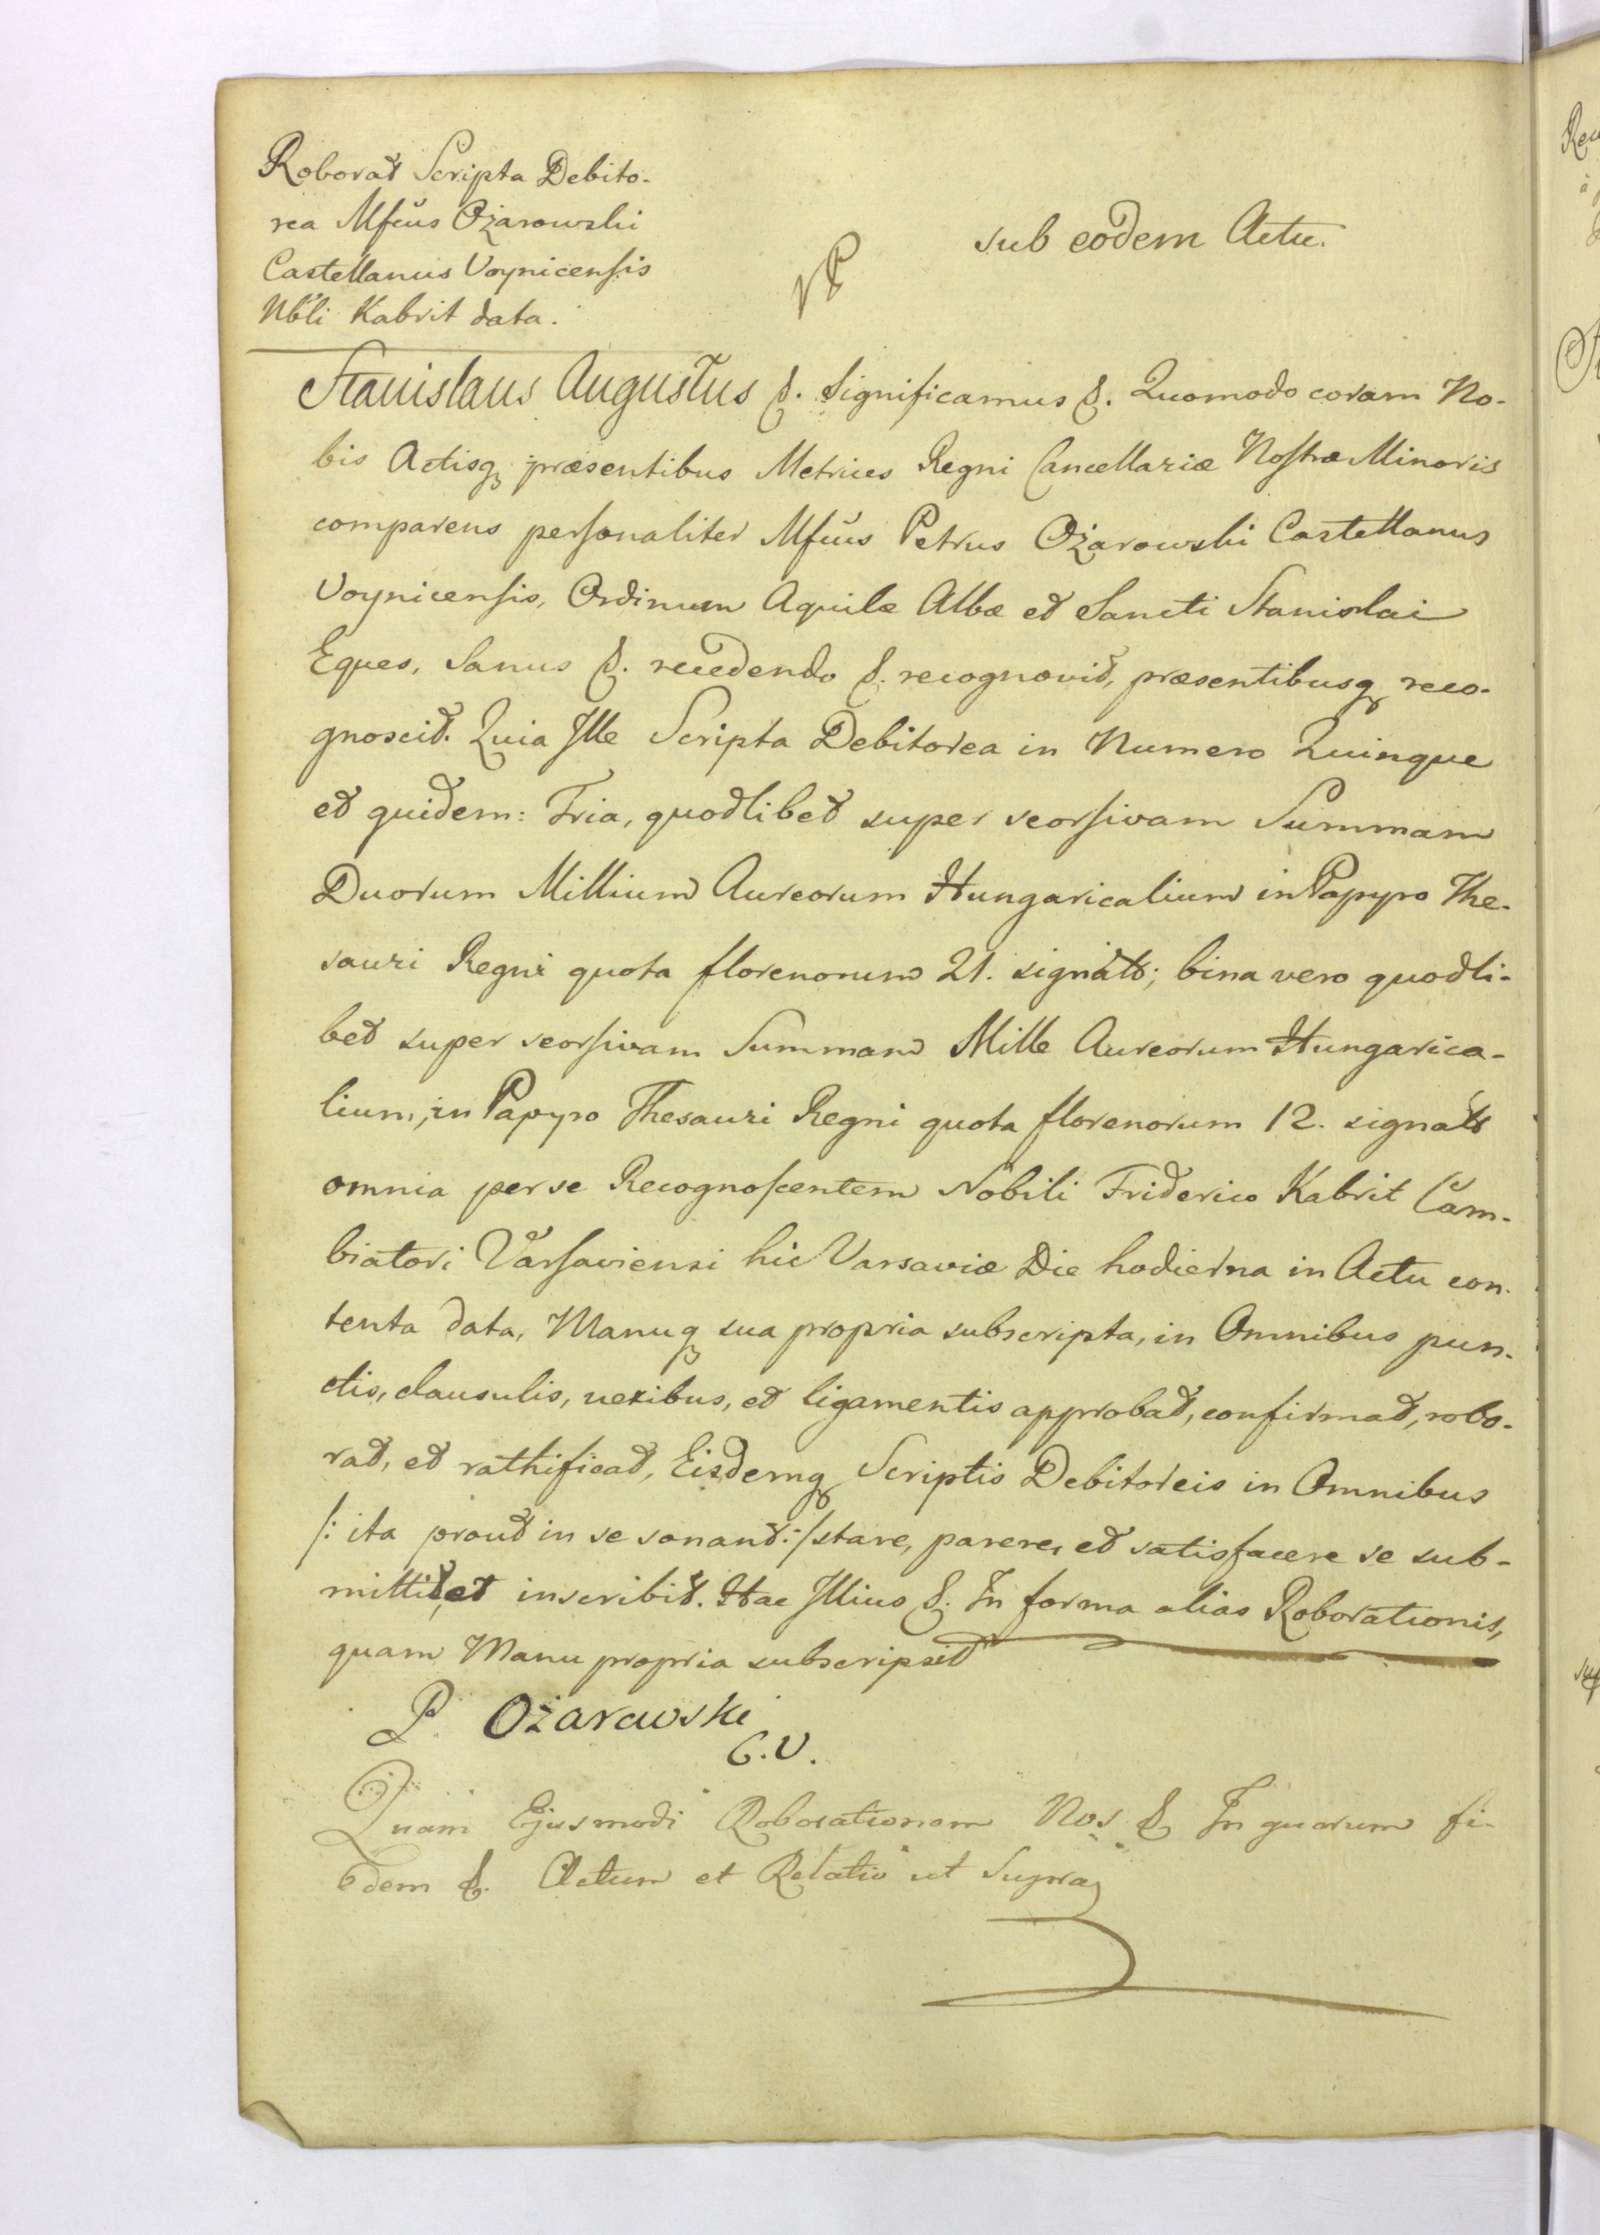 Roborat Scripta Debito-
rea Mfcus Ożarowski
Castellanus Voynicensis
Nbli Kabrit data.
sub eodem Actu.
Stanislaus Augustus &. Significamus &. Quomodo coram No-
bis Actisq præsentibus Metrices Regni Cancellariæ Nostræ Minoris
comparens personaliter Mfcus Petrus Ożarowski Castellanus
Voynicensis, Ordinum Aquilæ Albæ et Sancti Stanislai
Eques, Sanus &. recedendo &. recognovit, præsentibusq reco-
gnoscit. Quia Ille Scripta Debitorea in Numero Quinque
et quidem: Tria, quodlibet super seorsivam Summam
Duorum Millium Aureorum Hungaricalium in Papyro The-
sauri Regni quota florenorum 21. signat; bina vero quodli-
bet super seorsivam Summam Mille Aureorum Hungarica-
lium, in Papyro Thesauri Regni quota florenorum 12. signat
omnia per se Recognoscentem Nobili Friderico Kabrit Cam-
biatori Varsaviensi hic Varsaviæ Die hodierna in Actu con-
tenta data, Manuq sua propria subscripta, in Omnibus pun-
ctis, clausulis, nexibus, et ligamentis approbat, confirmat, robo-
rat, et rathificat, Eisdemq Scriptis Debitoreis in Omnibus
/: ita prout in se sonant :/ stare, parere, et satisfacere se sub-
mittit, et inscribit. Hac Illius &. In forma alias Roborationis,
quam Manu propria subscripsit
P. Ożarowski
C.V.
Quam Ejusmodi Roborationem Nos & In quorum fi-
dem &. Actum et Relatio ut Supra